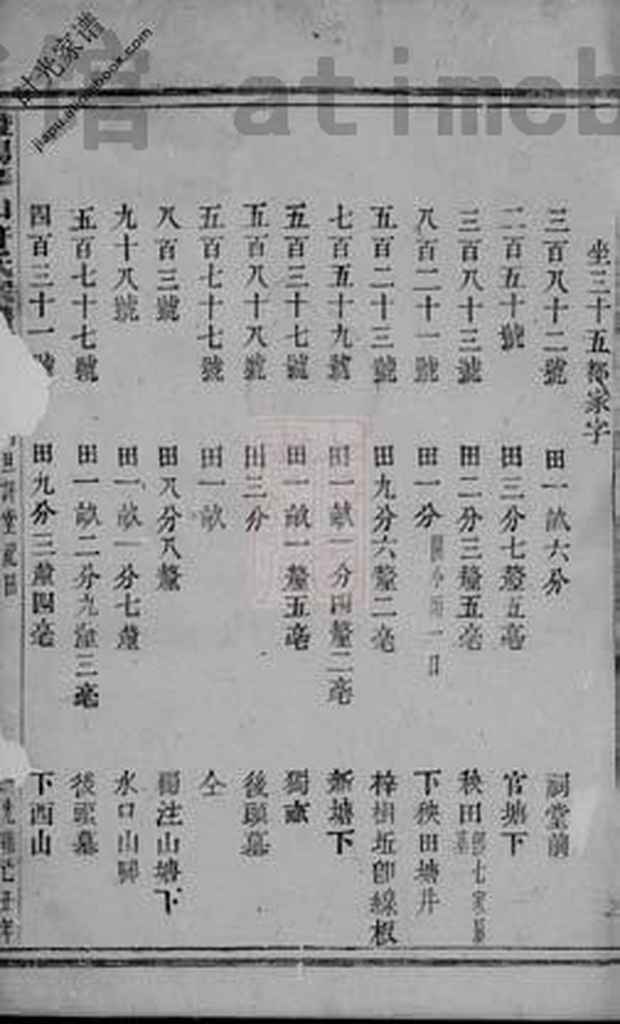 坐三十五都家字
三百八十二號 田一畝六分 祠堂前
二百五十號 田三分七釐五毫 官塘下
三百八十三號 田二分三釐五毫 秧田
八百二十一號 田一分 下秧田塘井
五百二十三號 田九分六釐二毫 梓樹坵卽線板
七百五十九號 田一畝一分四釐二毫 新塘下
五百三十七號 田一畝一釐五毫 獨畝
五百八十八號 田三分 後頭墓
五百七十七號 田一畝 仝
八百三號 田八分八釐 獨注山塘下
九十八號 田一畝一分七釐 水口山
五百七十七號 田一畝二分九釐三毫 後頭墓
四百三十一號 田九分三釐四毫 下西山
時光家譜
jiapu.atimebook.com
館 atimeb